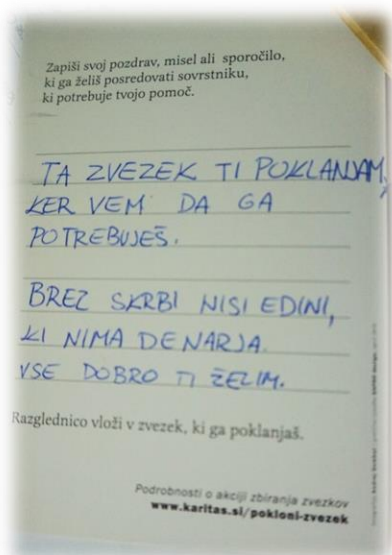 Zapiši svoj pozdrav, misel ali sporočilo,
ki ga želiš posredovati sovrstniku,
ki potrebuje tvojo pomoč.
TA ZVEZEK TI POKLANJAM,
KER VEM DA GA
POTREBUJEŠ.
BREZ SKRBI NISI EDINI,
KI NIMA DENARJA.
VSE DOBRO TI ŽELIM.
Razglednico vloži v zvezek, ki ga poklanjaš.
Podrobnosti o akciji zbiranja zvezkov
www.karitas.si/pokloni-zvezek